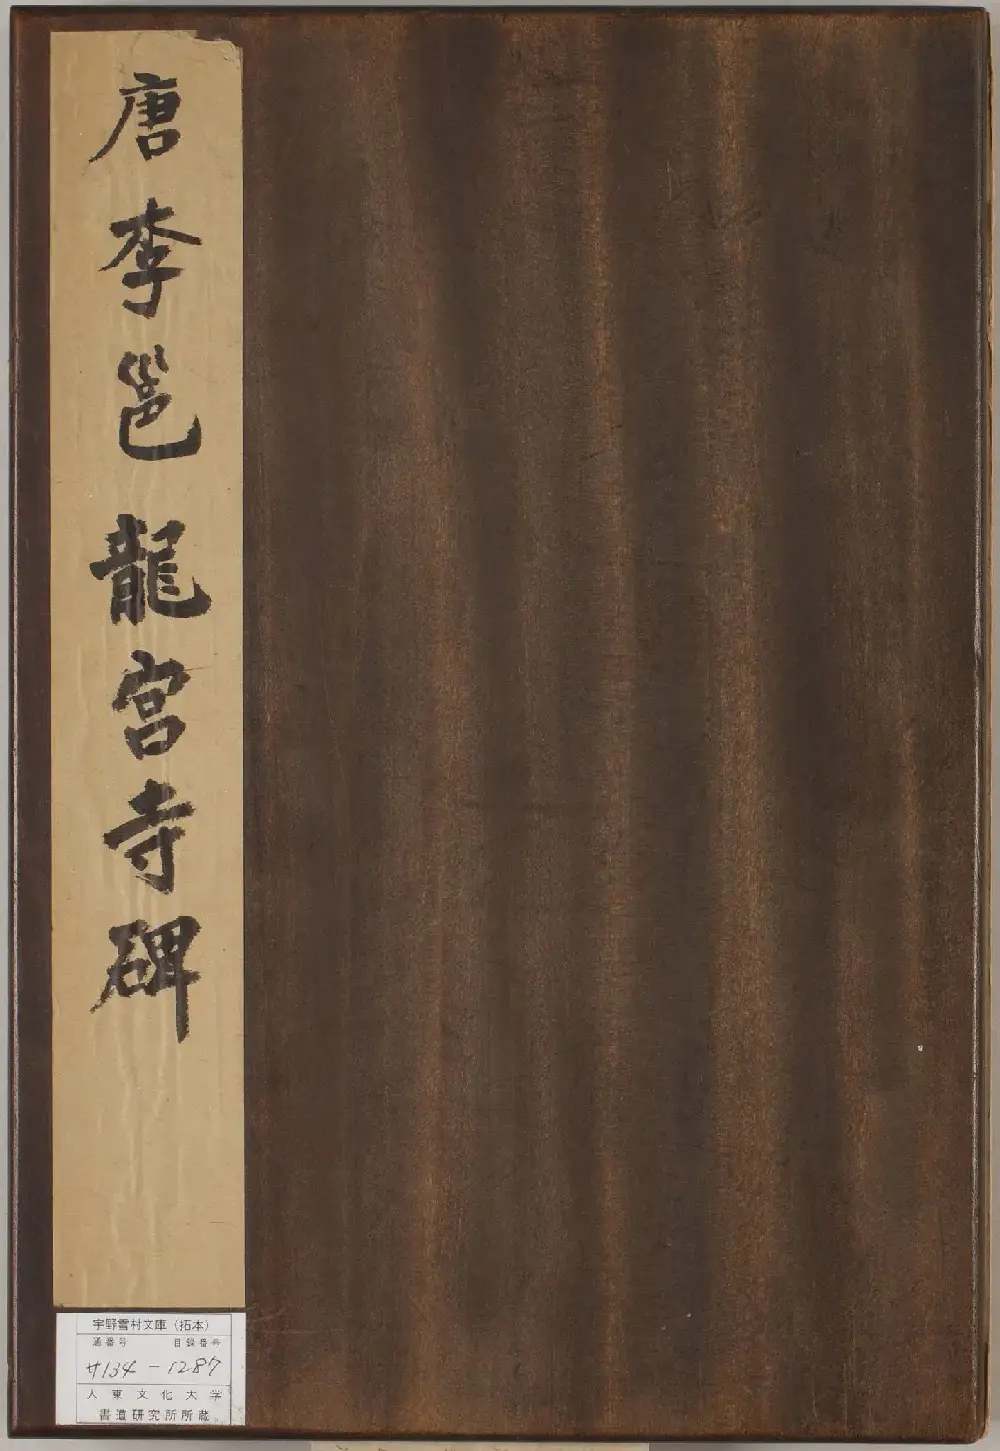 唐李邕龍宮寺碑
宇野雪村文庫（拓本）
通番号 目録番号
サ134 － 1287
大東文化大学
書道研究所所蔵